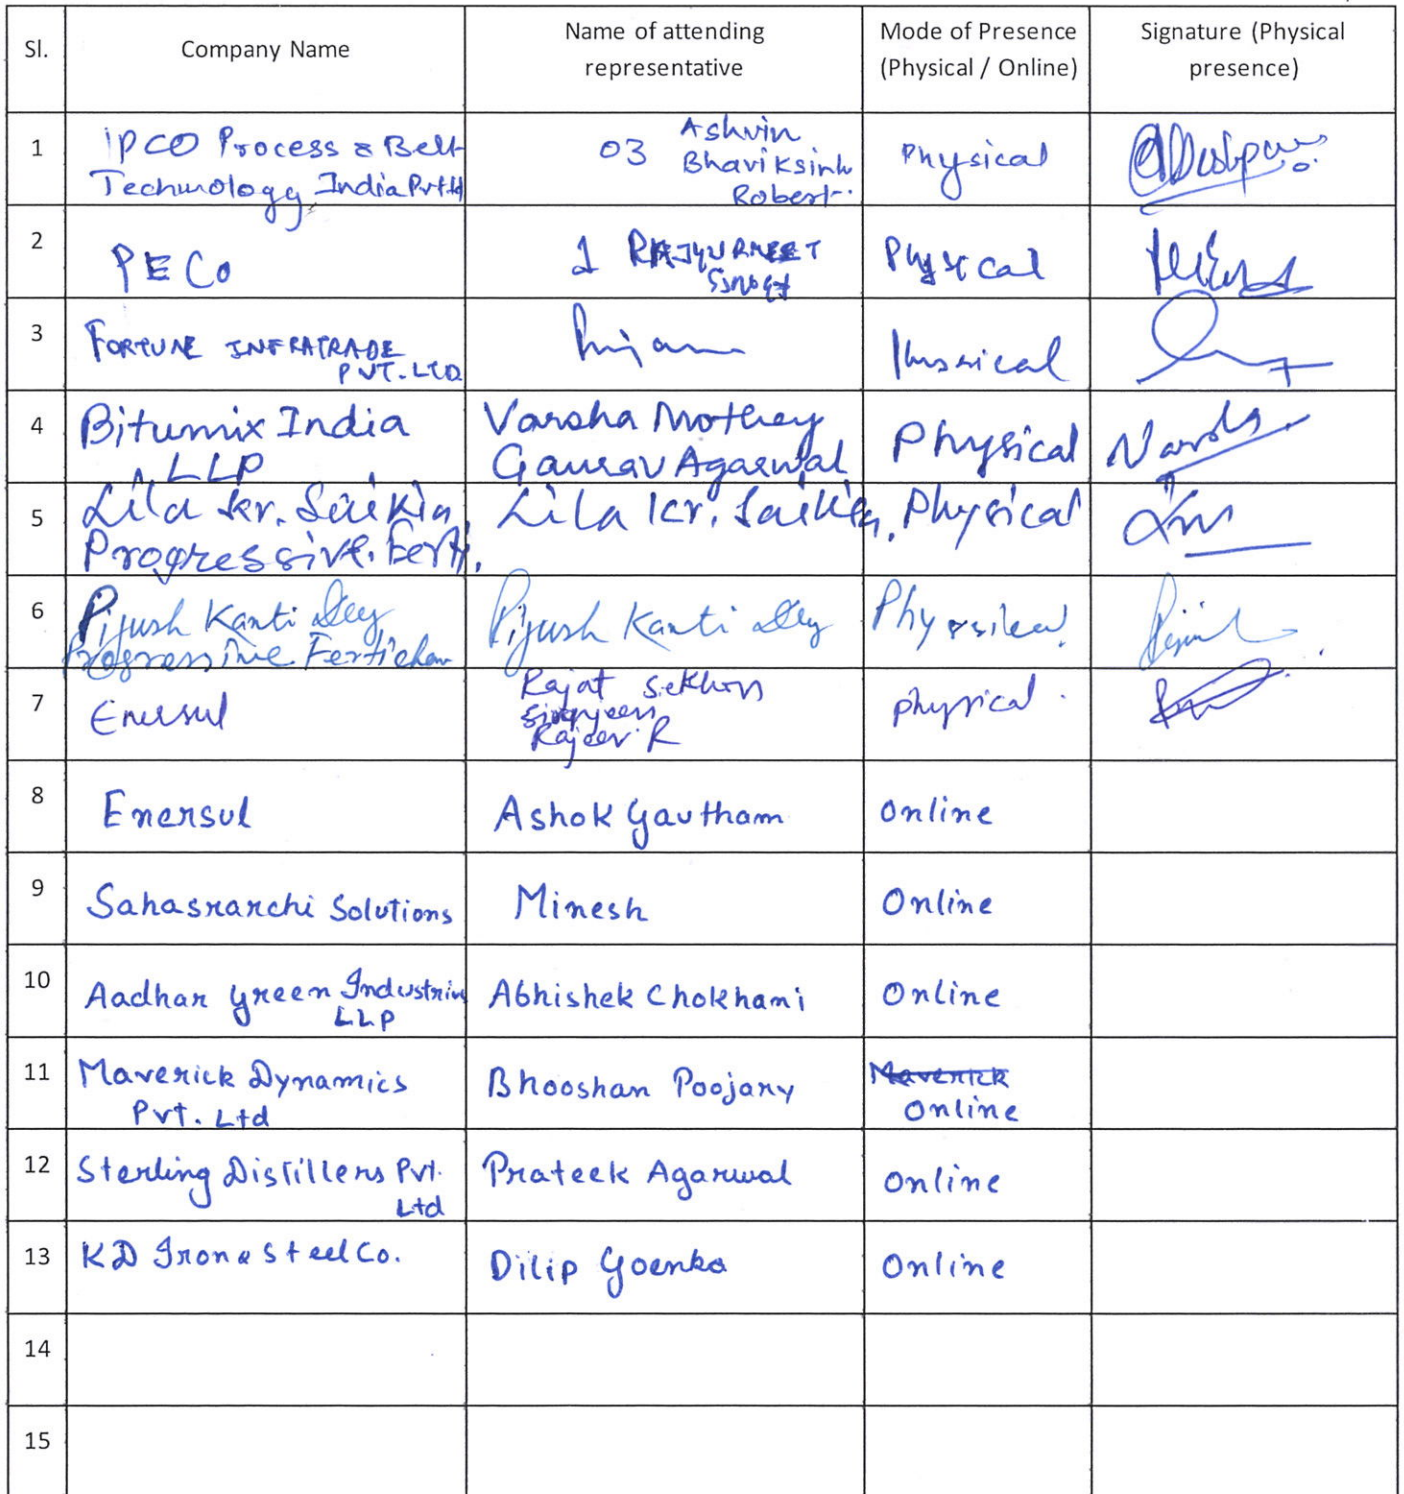 Sl.
Company Name
Name of attending
representative
Mode of Presence
(Physical / Online)
Signature (Physical
presence)
1
IPCO Process & Belt
Technology India Pvt Ltd
03 Ashvin
Bhaviksinh
Robert.
Physical
2
PECo
1
Physical
3
FORTUNE INFRATRADE
PVT. LTD
Physical
4
Bitumix India
LLP
Varsha Mothey
Gaurav Agarwal
Physical
5
Lila kr. Saikia,
Progressive. Ferti.
Lila kr. Saikia,
Physical
6
Pijush Kanti Dey
Progressive Fertichem
Pijush Kanti Dey
Physical
7
Enersul
Rajat Sekhon
Rajeev R
physical
8
Enersul
Ashok Gautham
Online
9
Sahasrarchi Solutions
Minesh
Online
10
Aadhar Green Industries
LLP
Abhishek Chokhani
Online
11
Maverick Dynamics
Pvt. Ltd
Bhooshan Poojary
Maverick
Online
12
Sterling Distillers Pvt.
Ltd
Prateek Agarwal
Online
13
KD Iron & Steel Co.
Dilip Goenka
Online
14
15